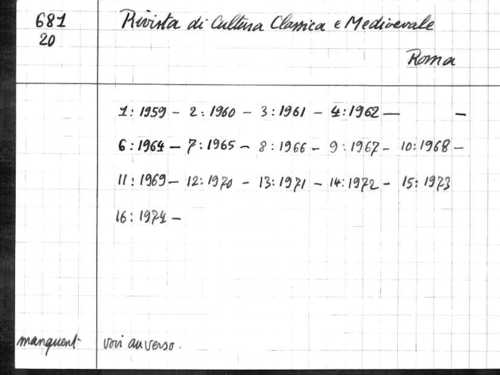 681
20
Rivista di Cultura Classica e Medioevale
Roma
1: 1959 - 2: 1960 - 3: 1961 - 4: 1962 - -
6: 1964 - 7: 1965 - 8: 1966 - 9: 1967 - 10: 1968 -
11: 1969 - 12: 1970 - 13: 1971 - 14: 1972 - 15: 1973
16: 1974 -
manquent voir au verso.